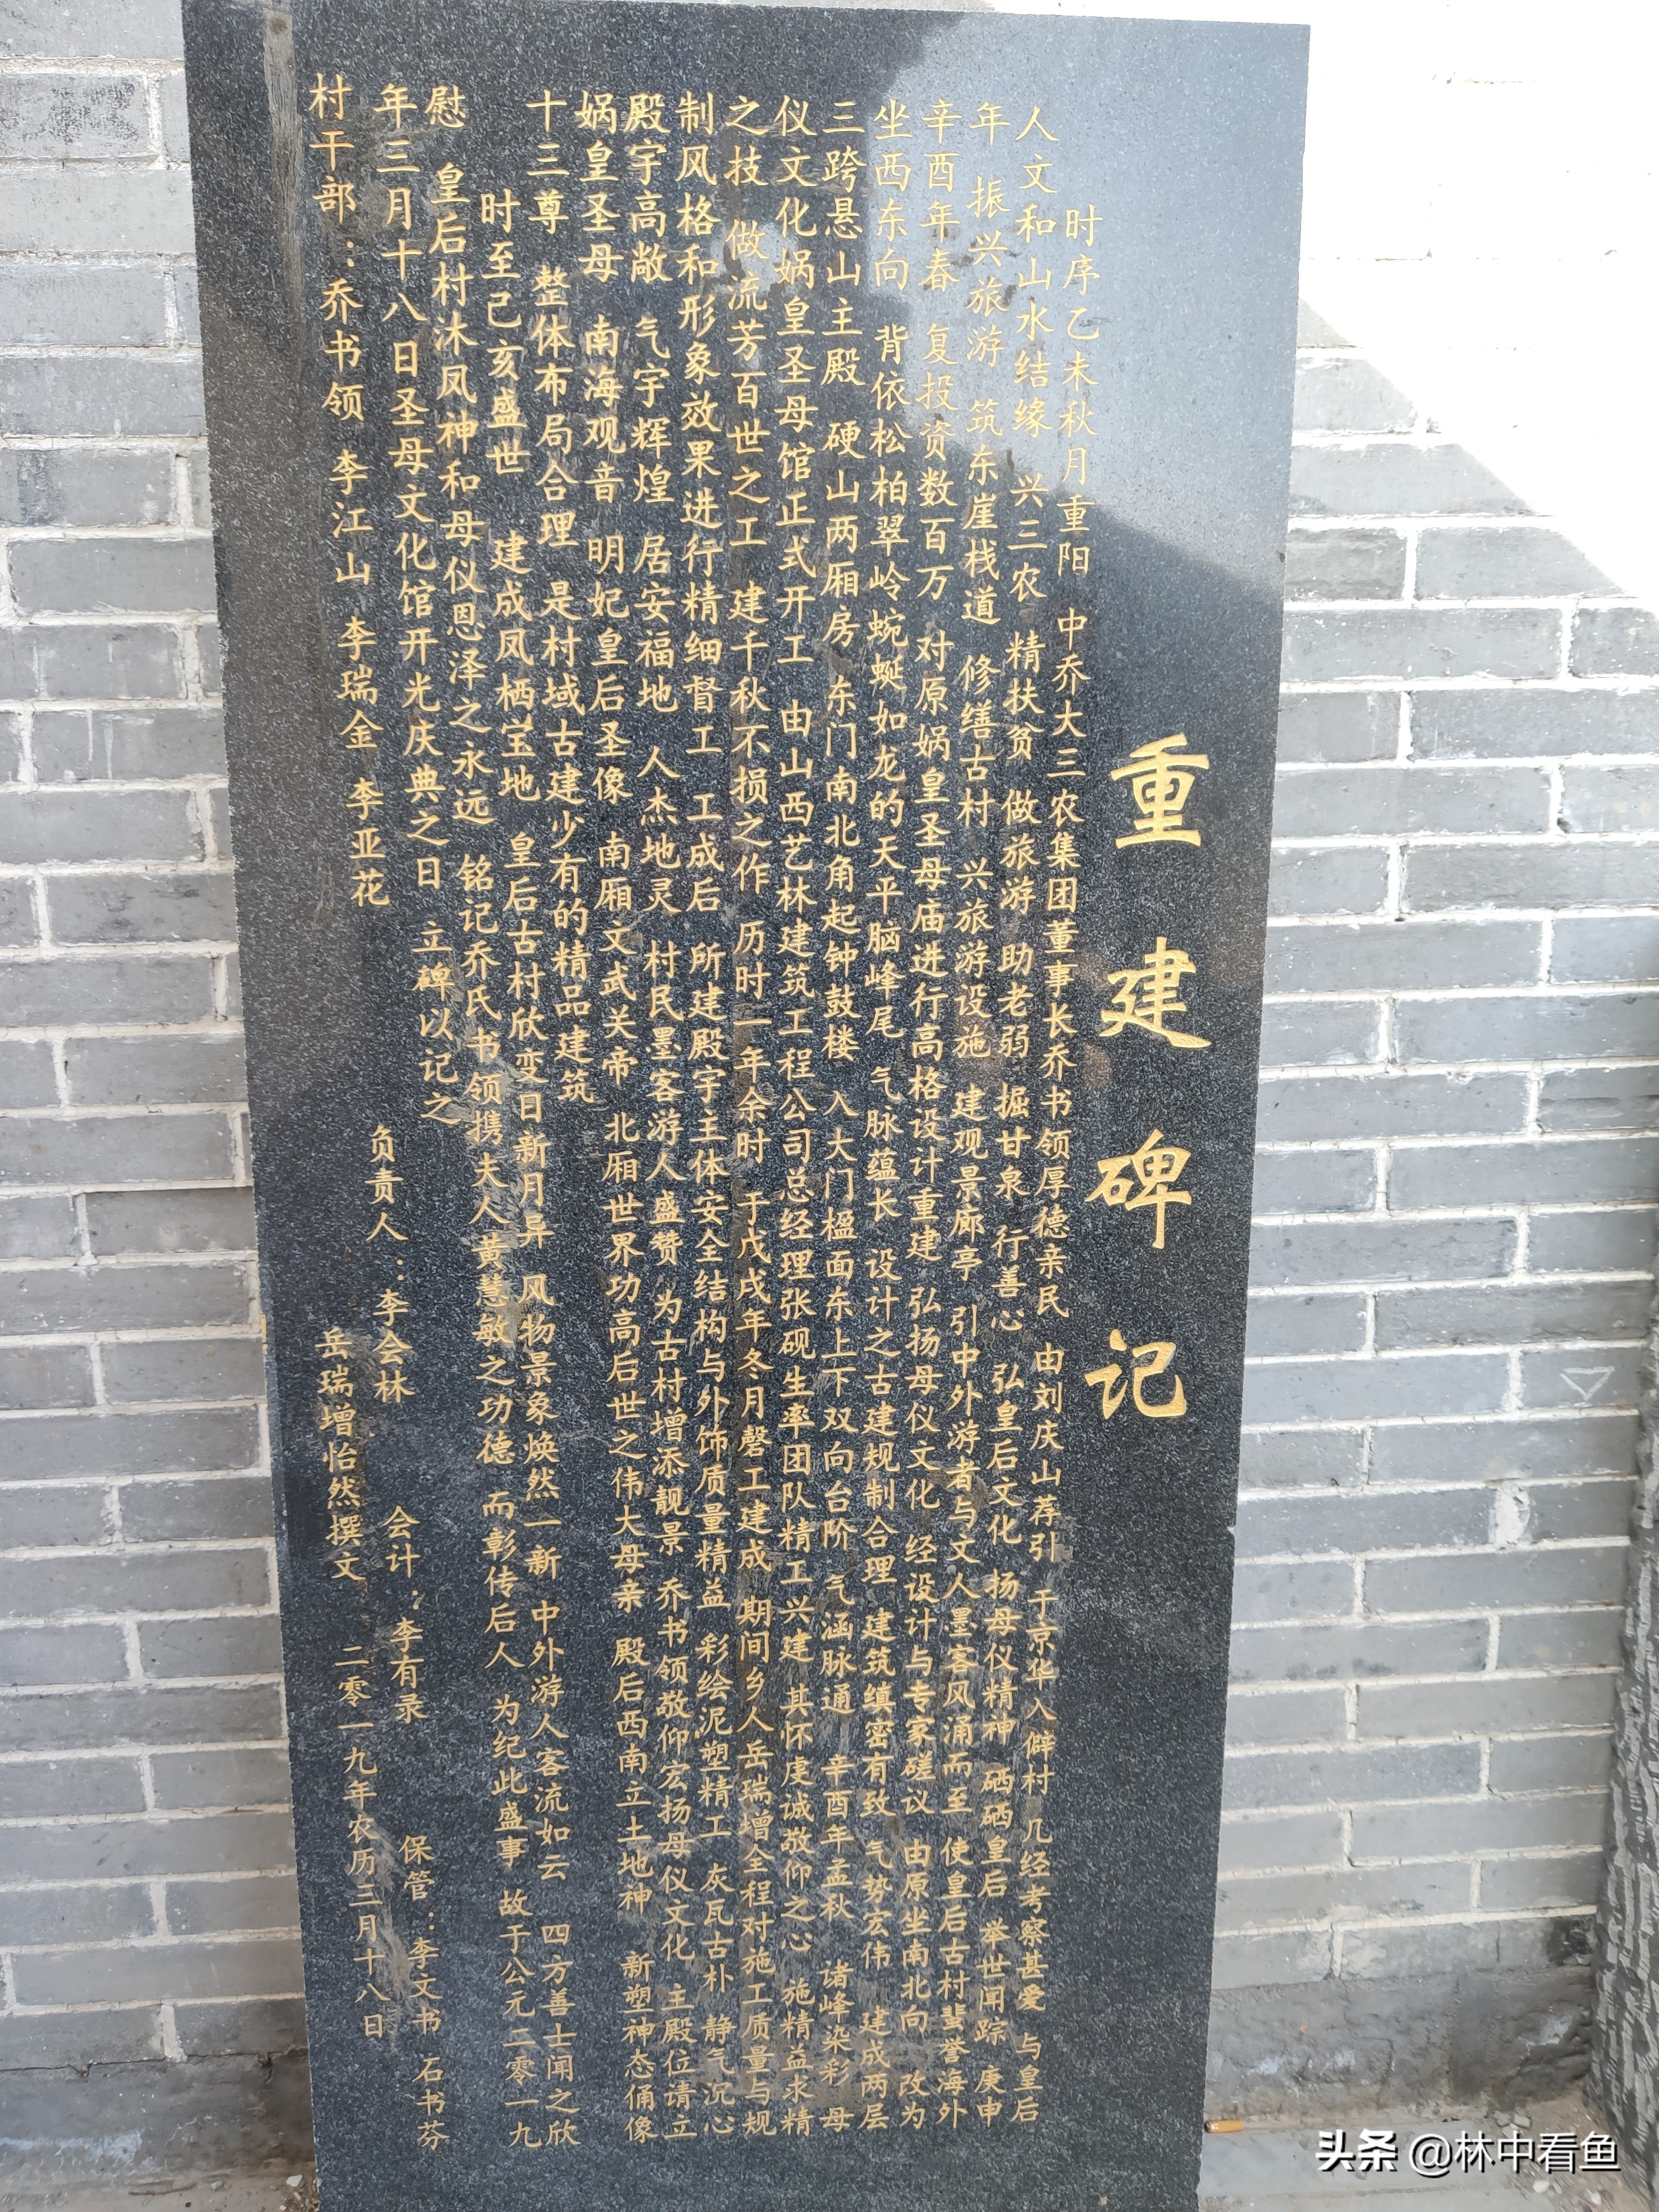 重建碑记
时序乙未秋月重阳 中乔大三农集团董事长乔书领厚德亲民 由刘庆山荐引 于京华入僻村几经考察甚爱 与皇后
人文和山水结缘 兴三农 精扶贫 做旅游 助老弱 掘甘泉 行善心 弘皇后文化 扬母仪精神 硒硒皇后 举世闻踪 庚申
年 振兴旅游 筑东崖栈道 修缮古村 兴旅游设施 建观景廊亭 引中外游者与文人墨客风涌而至 使皇后古村蜚誉海外
辛酉年春 复投资数百万 对原娲皇圣母庙进行高格设计重建 弘扬母仪文化 经设计与专家磋议 由原坐南北向 改为
坐西东向 背依松柏翠岭蜿蜒如龙的天平脑峰尾 气脉蕴长 设计之古建规制合理 建筑缜密有致 气势宏伟 建成两层
三跨悬山主殿 硬山两厢房 东门南北角起钟鼓楼 入大门楹面东上下双向台阶 气涵脉通 辛酉年孟秋 诸峰染彩 母
仪文化娲皇圣母馆正式开工 由山西艺林建筑工程公司总经理张砚生率团队精工兴建 其怀虔诚敬仰之心 施精益求精
之技 做流芳百世之工 建千秋不损之作 历时一年余时 于戊戌年冬月磬工建成 期间乡人岳瑞增全程对施工质量与规
制风格和形象效果进行精细督工 工成后 所建殿宇主体安全结构与外饰质量精益 彩绘泥塑精工 灰瓦古朴 静气沉心
殿宇高敞 气宇辉煌 居安福地 人杰地灵 村民墨客游人盛赞 为古村增添靓景 乔书领敬仰宏扬母仪文化 主殿位请立
娲皇圣母 南海观音 明妃皇后圣像 南厢文武关帝 北厢世界功高后世之伟大母亲 殿后西南立土地神 新塑神态俑像
十三尊 整体布局合理 是村域古建少有的精品建筑
时至己亥盛世 建成凤栖宝地 皇后古村欣变日新月异 风物景象焕然一新 中外游人客流如云 四方善士闻之欣
慰 皇后村沐凤神和母仪恩泽之永远 铭记乔氏书领携夫人黄慧敏之功德 而彰传后人 为纪此盛事 故于公元二零一九
年三月十八日圣母文化馆开光庆典之日 立碑以记之
负责人：李会林 会计：李有录 保管：李文书 石书芬
村干部：乔书领 李江山 李瑞金 李亚花
岳瑞增怡然撰文 二零一九年农历三月十八日
头条 @林中看鱼